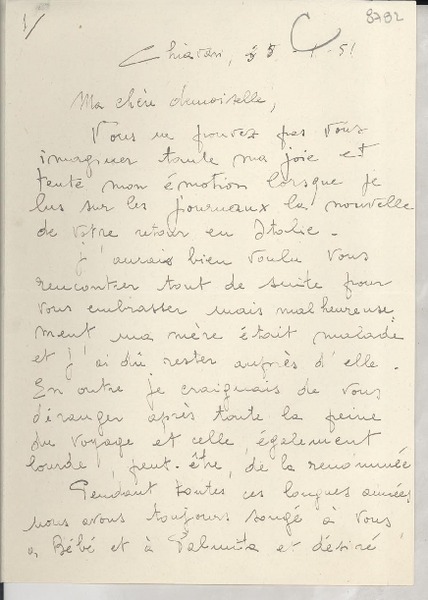 1/
8792
Chiavari, 25 - 1 - 51
Ma chère demoiselle,
Vous ne pouvez pas vous
imaginer toute ma joie et
toute mon émotion lorsque je
lus sur les journaux la nouvelle
de votre retour en Italie -
j'aurais bien voulu vous
rencontrer tout de suite pour
vous embrasser mais malheureuse
ment ma mère était malade
et j'ai dû rester auprès d'elle.
En outre je craignais de vous
déranger après toute la peine
du voyage et celle, également
lourde, peut-être, de la renommée
Pendant toutes ces longues années
nous avons toujours songé à vous
à Bébé et à Palmita et désiré